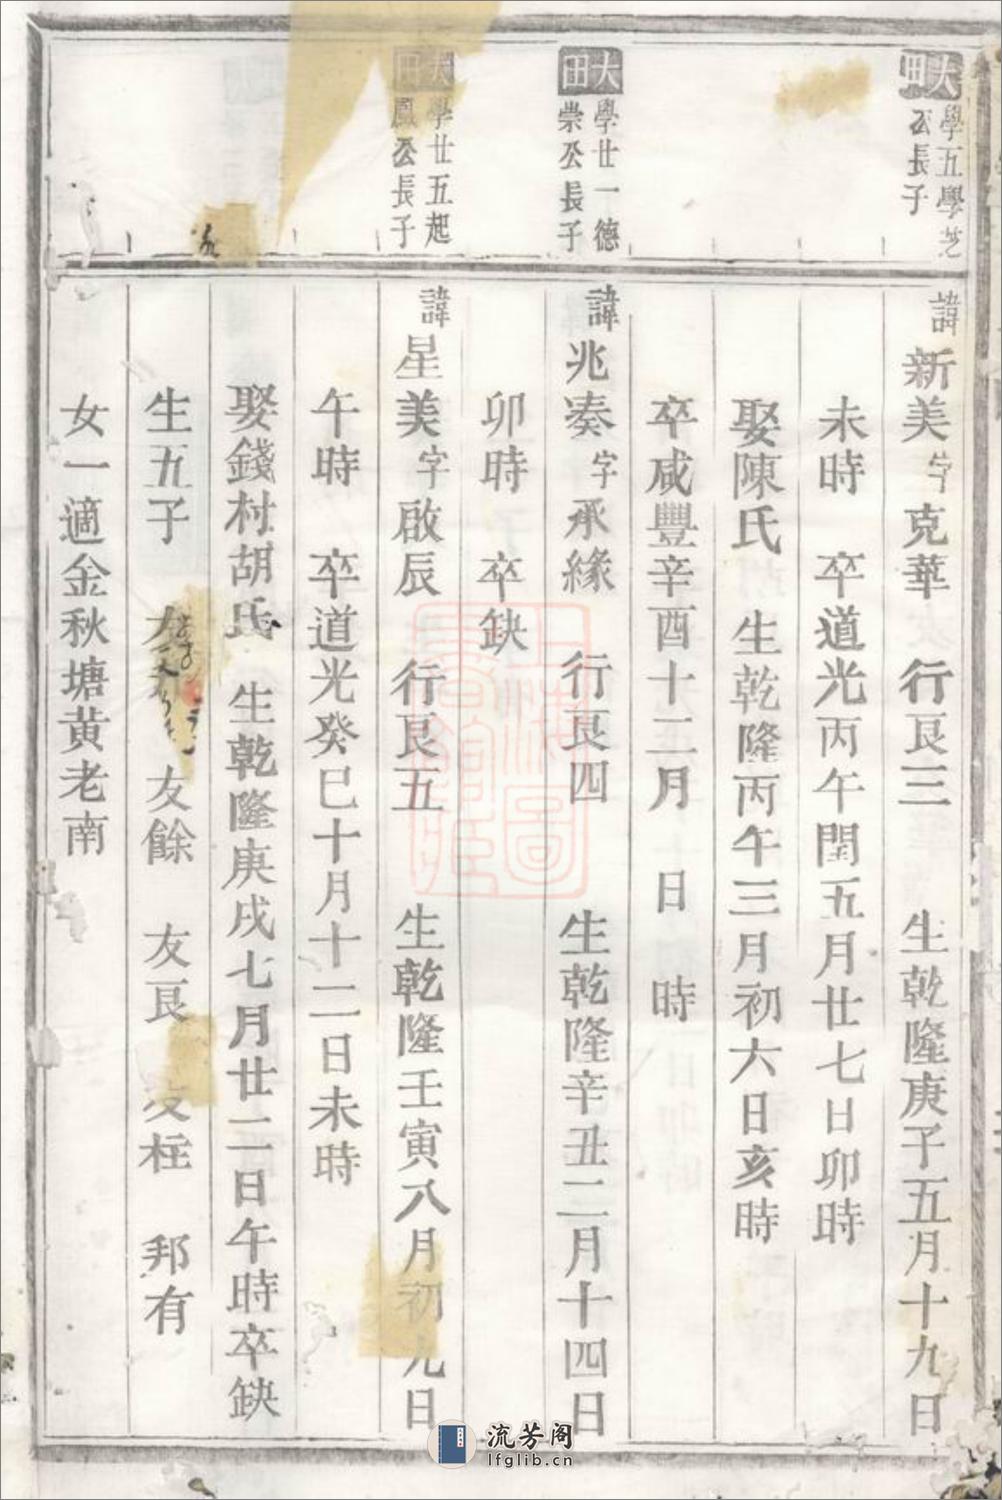 大田
學五學芝
公長子
諱新美字克華　行艮三　生乾隆庚子五月十九日
未時　卒道光丙午閏五月廿七日卯時
娶陳氏　生乾隆丙午三月初六日亥時
卒咸豐辛酉十二月　日　時
大田
學廿一德
崇公長子
諱兆湊字承緣　行艮四　生乾隆辛丑二月十四日
卯時　卒缺
大田
學廿五起
鳳公長子
諱星美字啟辰　行艮五　生乾隆壬寅八月初九日
午時　卒道光癸巳十月十二日未時
娶錢村胡氏　生乾隆庚戌七月廿二日午時卒缺
生五子　友餘　友艮　友柱　邦有
女一適金秋塘黃老南
流芳阁
lfglib.cn